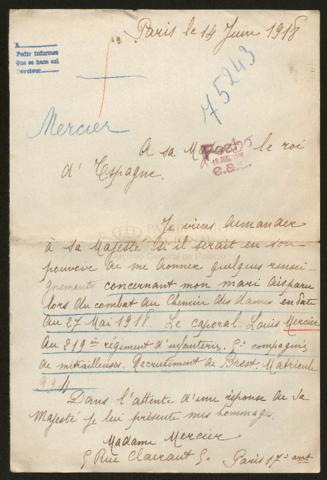 Paris le 14 Juin 1918
Pedir informes
Que se hace así
Devolver
75243
Mercier
A sa Majesté le roi
d'Espagne.
Je viens demander
à sa Majesté s'il serait en son
pouvoir de me donner quelques rensei-
gnements concernant mon mari disparu
lors du combat au Chemin des dames en date
du 27 Mai 1918. Le caporal Louis Mercier
du 219me régiment d'infanterie, 5e compagnie
de mitrailleuses. Recrutement de Brest. Matricule
Dans l'attente d'une réponse de sa
Majesté je lui présente mes hommages.
Madame Mercier
5 Rue Clairaut 5. Paris 17e arrt